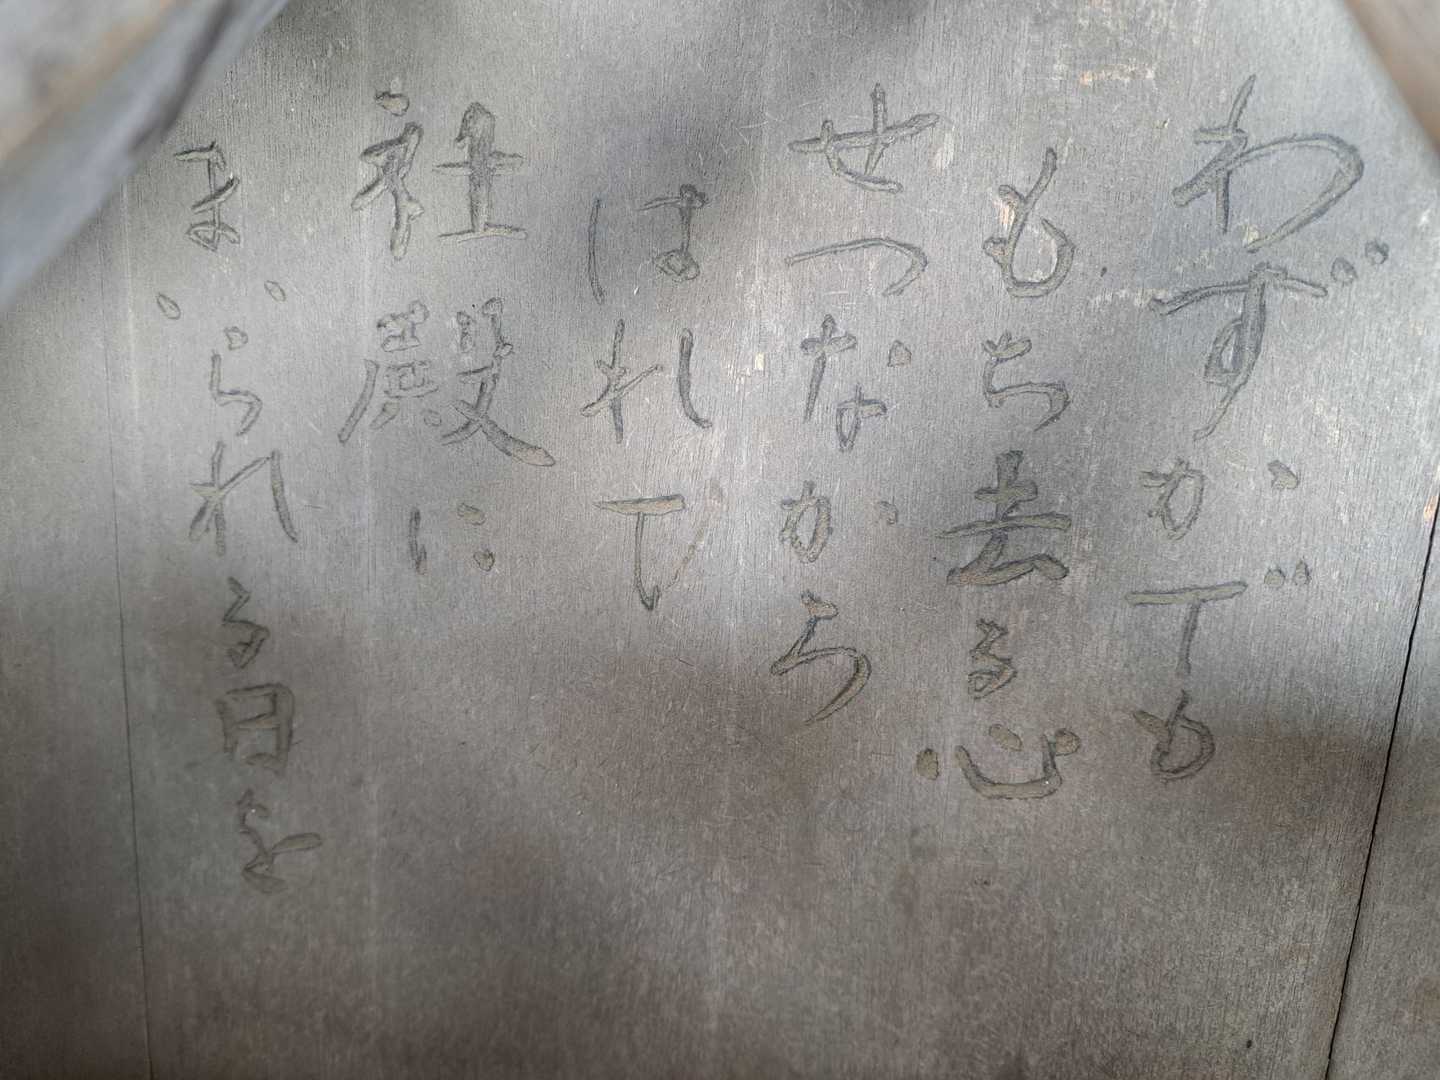 わずかでも
もち去る心
せつなかろ
はれて
社殿に
まいられる日を